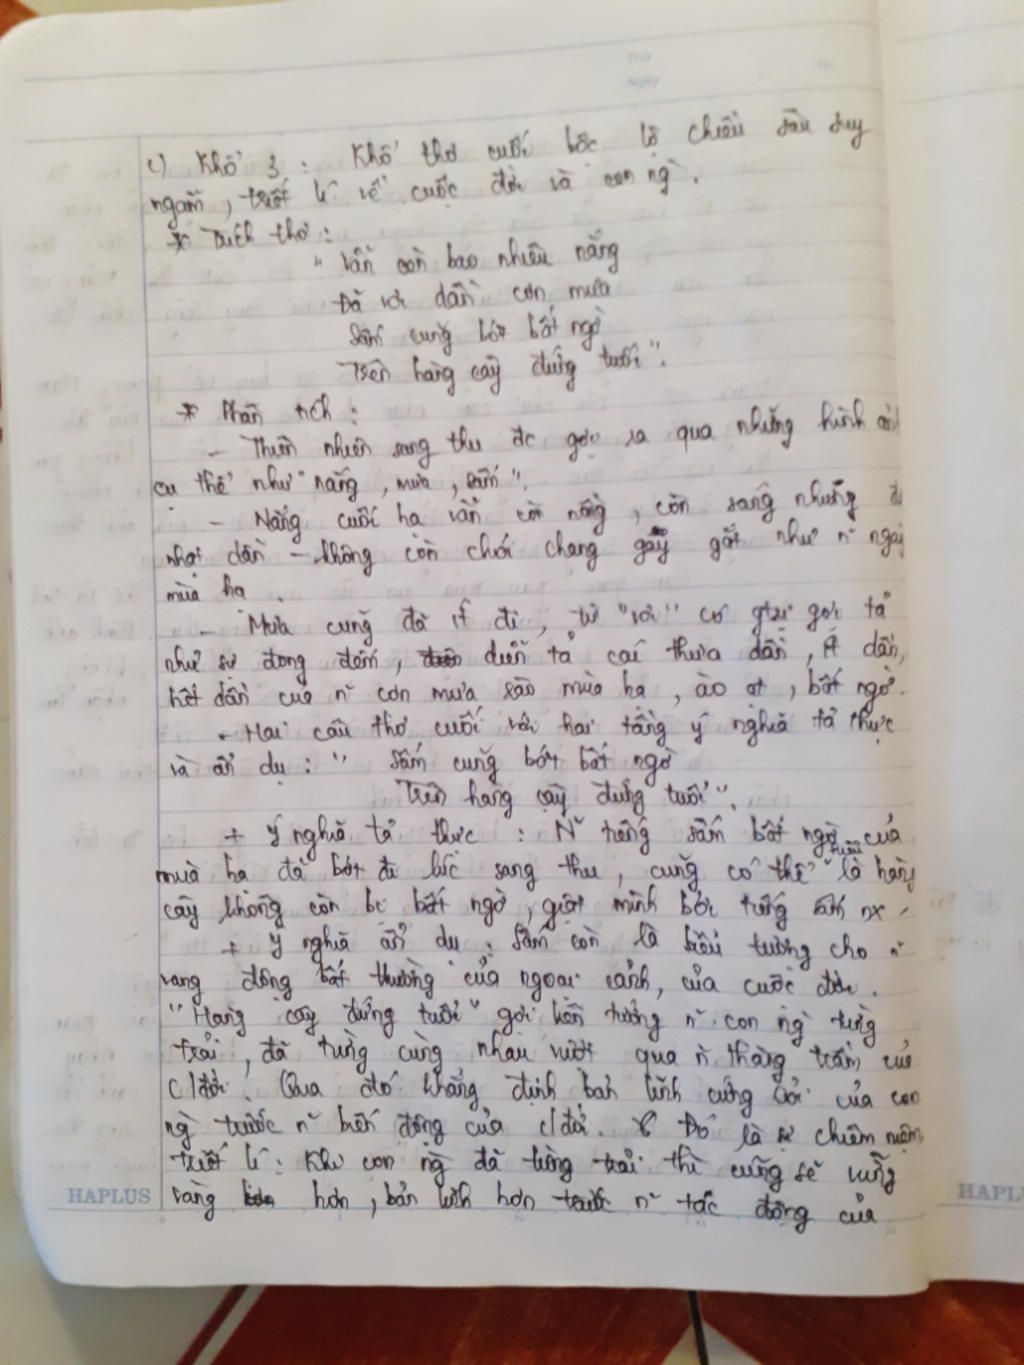 Thứ
Ngày
c) Khổ 3 : Khổ thơ cuối bộc lộ chiều sâu suy
ngẫm, triết lí về cuộc đời và con ng̀.
* Trích thơ :
" Vẫn còn bao nhiêu nắng
Đã vơi dần cơn mưa
Sấm cũng bớt bất ngờ
Trên hàng cây đứng tuổi".
* Phân tích :
- Thiên nhiên sang thu đc gợi ra qua những hình ảnh
cụ thể như "nắng, mưa, sấm".
- Nắng cuối hạ vẫn còn nồng, còn sáng nhưng đã
nhạt dần - không còn chói chang gay gắt như n~ ngày
mùa hạ.
- Mưa cũng đã ít đi, từ "vơi" có gtrị gợi tả
như sự đong đếm, diễn tả cái thưa dần, ít dần,
hết dần của n~ cơn mưa rào mùa hạ, ào ạt, bất ngờ.
- Hai câu thơ cuối với hai tầng ý nghĩa tả thực
và ẩn dụ : " Sấm cũng bớt bất ngờ
Trên hàng cây đứng tuổi".
+ Ý nghĩa tả thực : N~ tiếng sấm bất ngờ của
mùa hạ đã bớt đi lúc sang thu, cũng có thể hiểu là hàng
cây không còn bị bất ngờ, giật mình bởi tiếng sấm nx.
+ Ý nghĩa ẩn dụ : Sấm còn là biểu tượng cho n~
vang động bất thường của ngoại cảnh, của cuộc đời.
"Hàng cây đứng tuổi" gợi liên tưởng n~ con ng̀ từng
trải, đã từng cùng nhau vượt qua n~ thăng trầm của
c/đời. Qua đó khẳng định bản lĩnh cứng cỏi của con
ng̀ trước n~ biến động của c/đời. Đó là sự chiêm nghiệm,
triết lí : Khi con ng̀ đã từng trải thì cũng sẽ vững
vàng hơn, bản lĩnh hơn trước n~ tác động của
HAPLUS